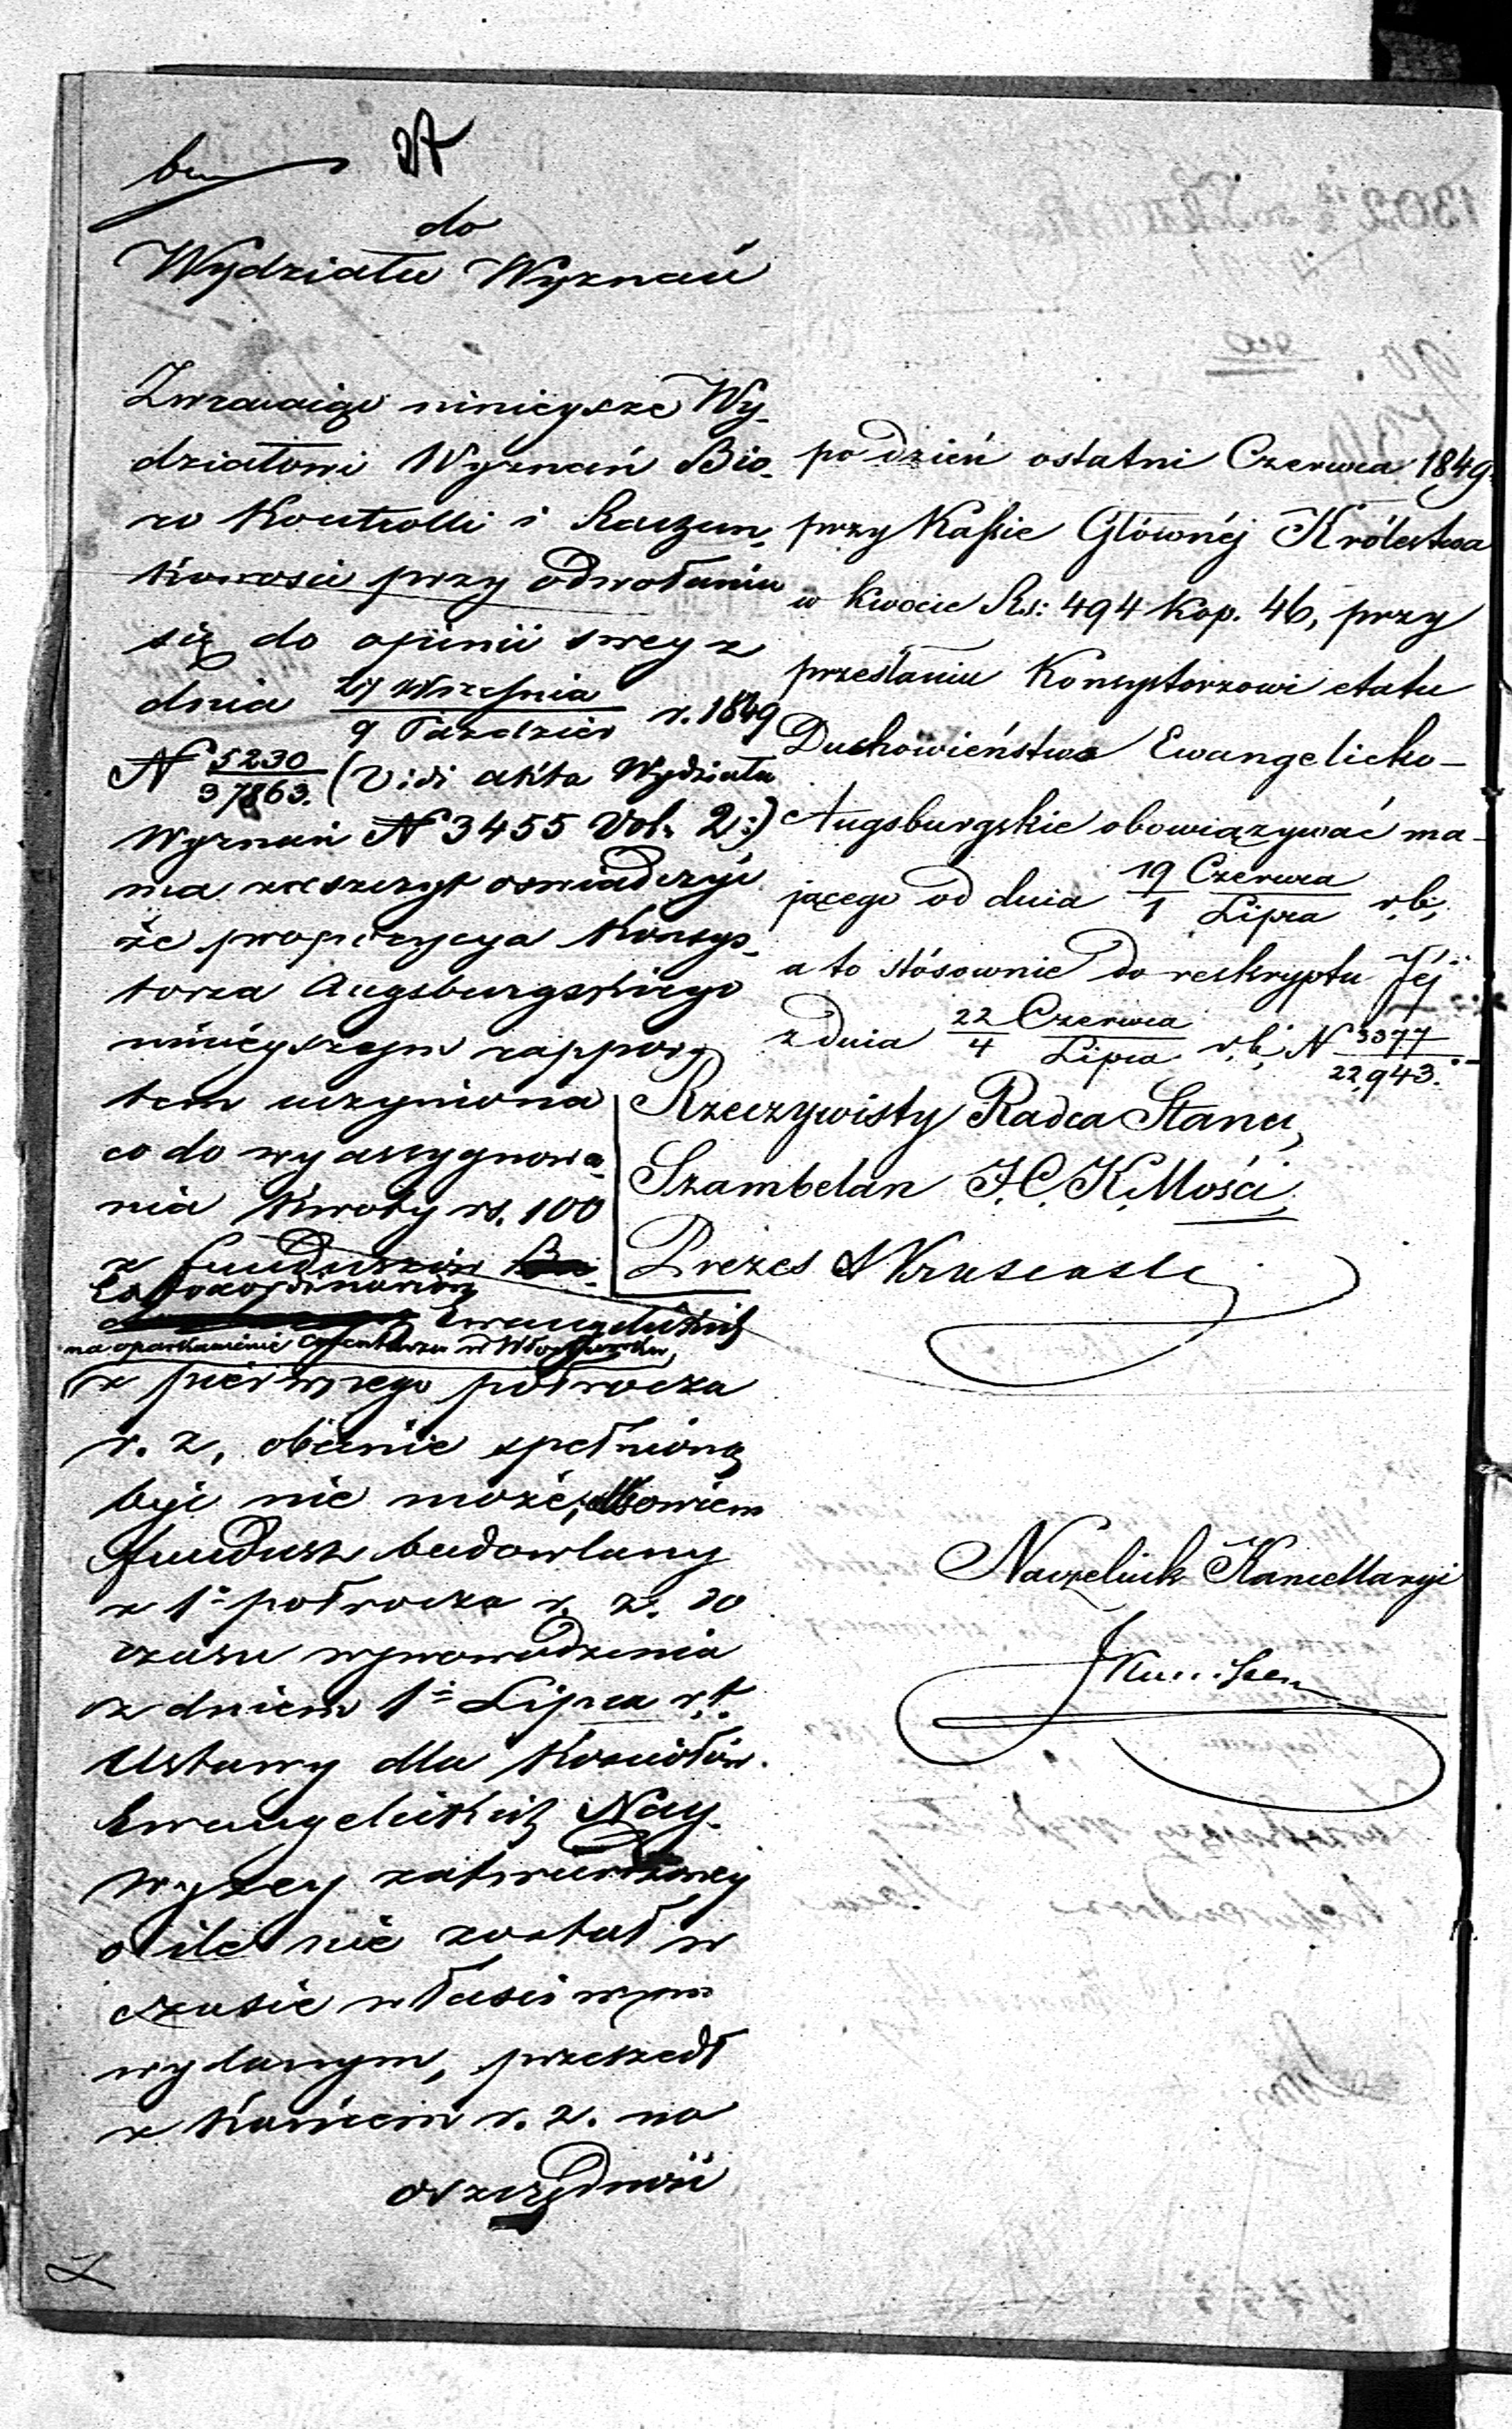 do
Wydziału Wyznań
Zwracaiąc ninieysze Wy-
działowi Wyznań Bió-
ro Kontrolli i Rachun-
kowości przy odwołaniu
się do opinii swey z
dnia 27 Września / 9 Paździer r. 1849
N 5230/37863. (Vidi akta Wydziału
Wyznań N 3455 Vol. 2:)
ma zaszczyt oświadczyć
że propozycya Konsys-
torza Augsburgskiego
ninieyszym rappor-
tem uczyniona
co do wyassygnowa-
nia kwoty rs. 100
z funduszów
Extraordinaryów
Ewangelickich
na oparkanienie cmentarza w
z pierwszego półrocza
r. z. obecnie spełnioną
być nie może, albowiem
fundusz budowlany
z 1º półrocza r. z. do
czasu wprowadzenia
z dniem 1º Lipca r. t.
Ustawy dla Kościołów
Ewangelickich Nay-
wyżey zatwierdzoney
o ile nie został w
czasie właściwym
wydanym, przeszedł
z końcem r. z. na
oszczędność
po dzień ostatni Czerwca 1849
przy Kassie Głównéj Królestwa
w kwocie Rs: 494 Kop. 46, przy
przesłaniu Konsystorzowi etatu
Duchowieństwa Ewangelicko-
Augsburgskie obowiązywać ma-
jącego od dnia 19 Czerwca / 1 Lipca r.b.,
a to stósownie do reskryptu Jéj
z dnia 22 Czerwca / 4 Lipca r.b. N 3377/22,943.
Rzeczywisty Radca Stanu,
Szambelan J. C. K. Mości,
Prezes
Naczelnik Kancellaryi